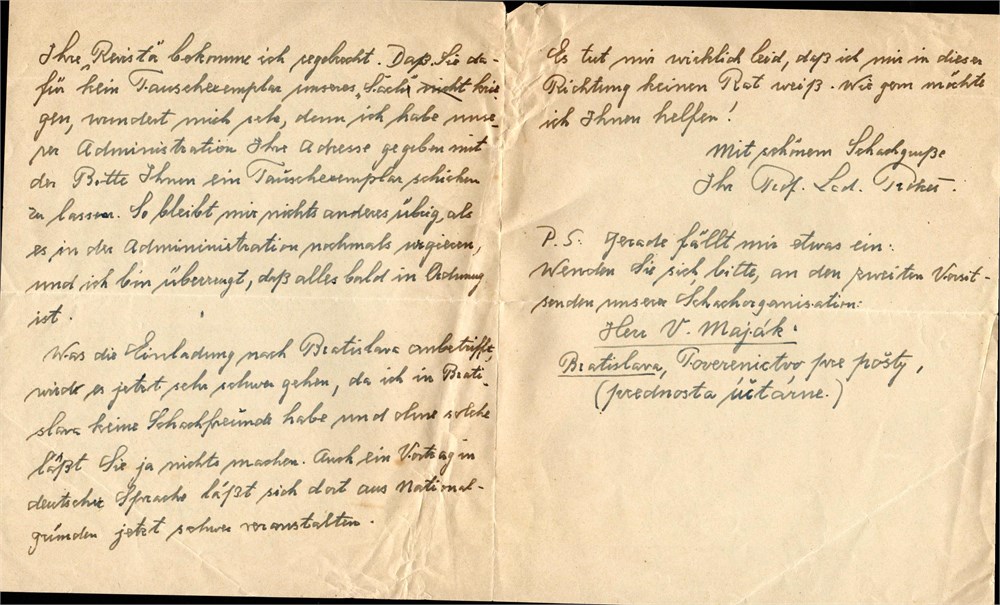 Ihre „Revista“ bekomme ich regelmäßig. Daß Sie da-
für kein Tauschexemplar unseres „Šach“ nicht krie-
gen, wundert mich sehr, denn ich habe unse-
rer Administration Ihre Adresse gegeben mit
der Bitte Ihnen ein Tauschexemplar schicken
zu lassen. So bleibt mir nichts anderes übrig, als
es in der Admininistration nochmals urgieren,
und ich bin überzeugt, daß alles bald in Ordnung
ist.
Was die Einladung nach Bratislava anbetrifft,
wird es jetzt sehr schwer gehen, da ich in Brati-
slava keine Schachfreunde habe und ohne solche
läßt Sie ja nichts machen. Auch ein Vortrag in
deutscher Sprache läßt sich dort aus National-
gründen jetzt schwer veranstalten.
Es tut mir wirklich leid, daß ich mir in dieser
Richtung keinen Rat weiß. Wie gern möchte
ich Ihnen helfen!
Mit schönem Schachgruße
Ihr Prof. Lad.
P.S. Gerade fällt mir etwas ein:
Wenden Sie sich, bitte, an den zweiten Vorsit-
senden unserer Schachorganisation:
Herr V. Maják.
Bratislava, Poverenictvo pre pošty,
(prednosta účtárne.)